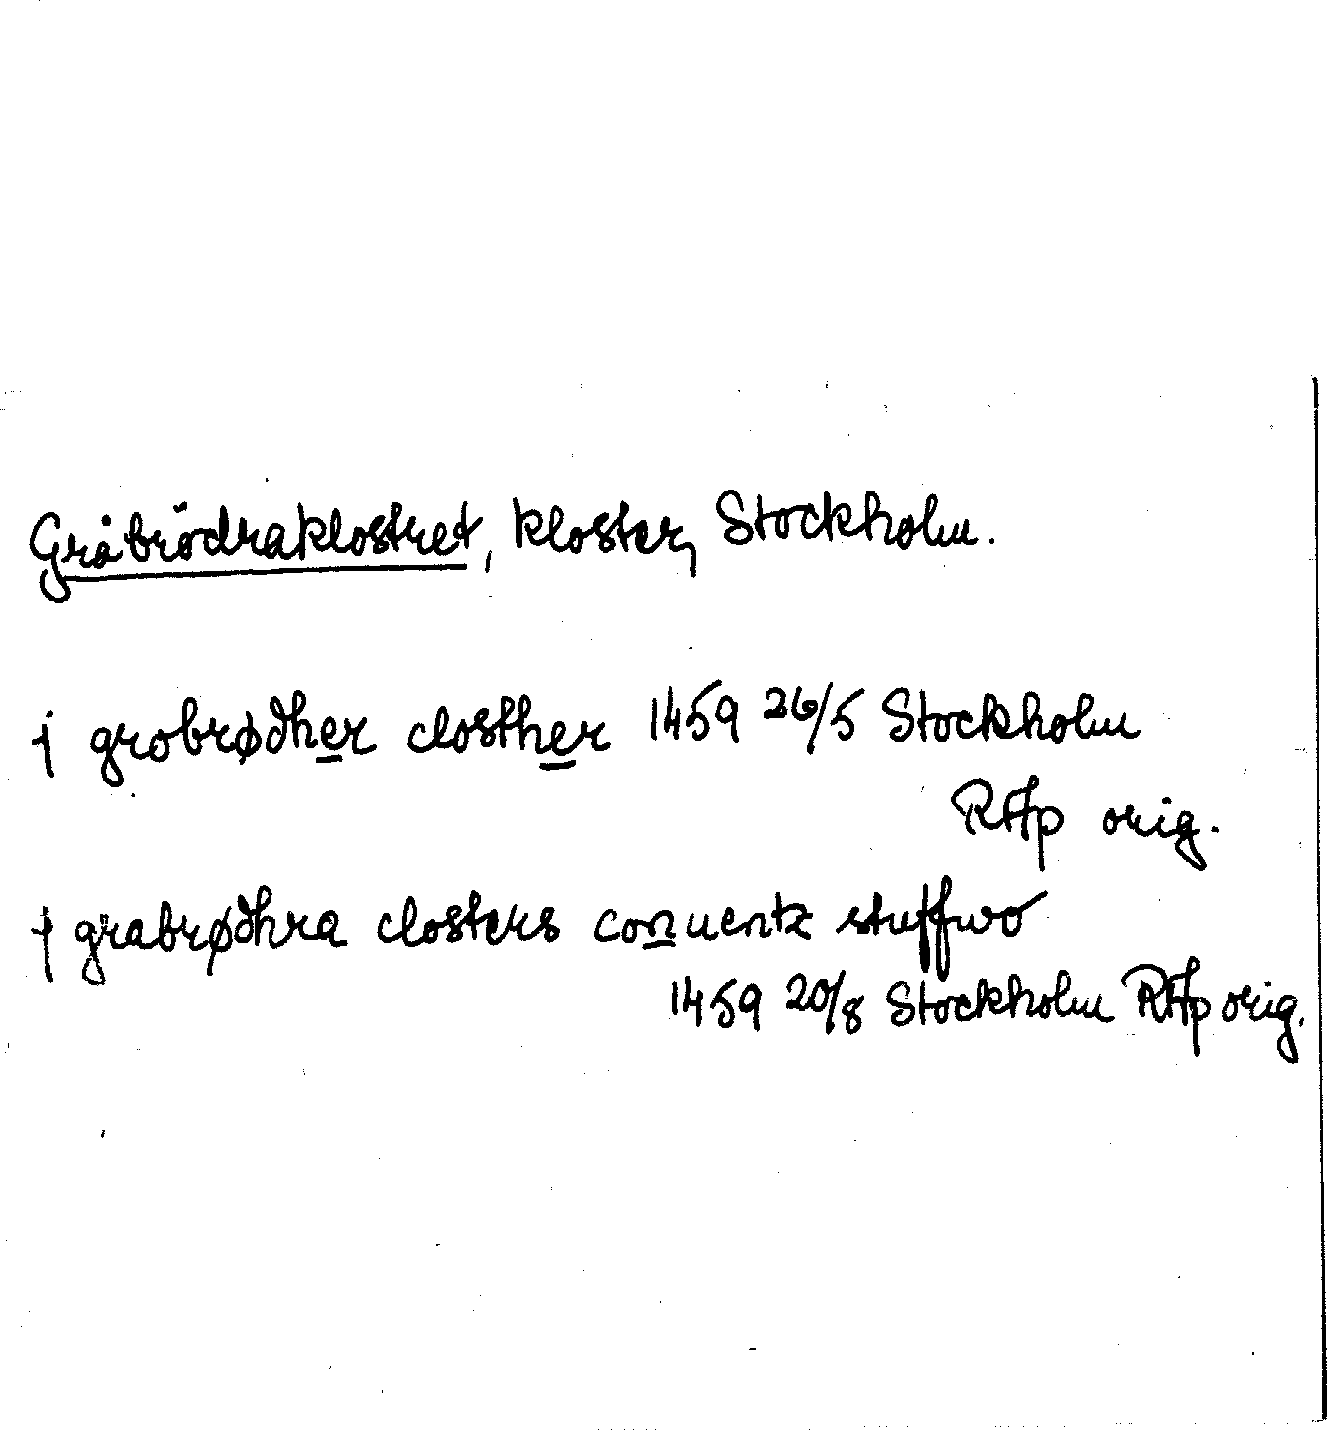 Gråbrödraklostret, kloster, Stockholm.
j grobrødher closther 1459 26/5 Stockholm
RAp orig.
j grabrødhra closters conuentz stuffwo
1459 20/8 Stockholm RAp orig.